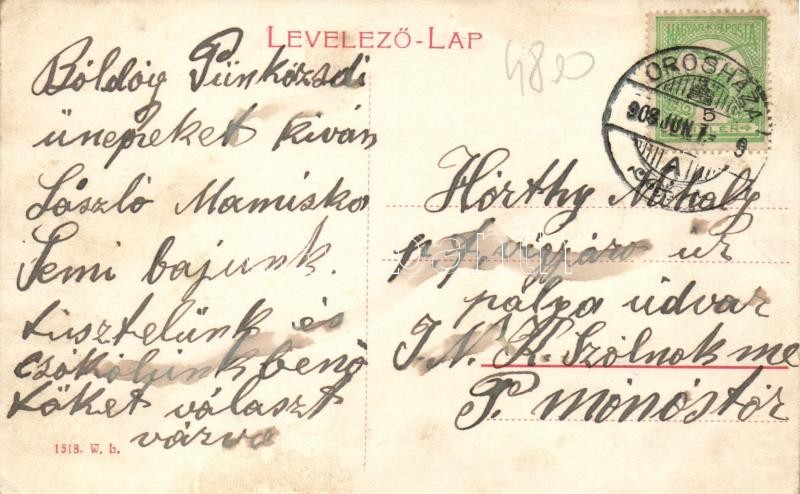 LEVELEZŐ-LAP
4800
MAGYAR KIR. POSTA
OROSHÁZA
908 JUN 7
A
Bóldóg Pünközsdi
ünepeket kiván
László Mamiska
Semi bajunk.
tisztelünk és
csókólunk benö
töket választ
várva
Hórthy Mihaly
úr
pálya údvar
J. N. K. Szólnok me
P. mónóstór
1518. W. b.